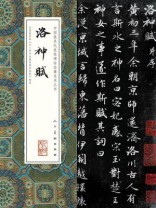 洛神賦
洛神賦 并序
黃初三年余朝京師還濟洛川古人有
言斯水之神名曰宓妃感宋玉對楚王
神女之事遂作斯賦其詞曰
余從京域言歸東藩背伊闕越轘轅